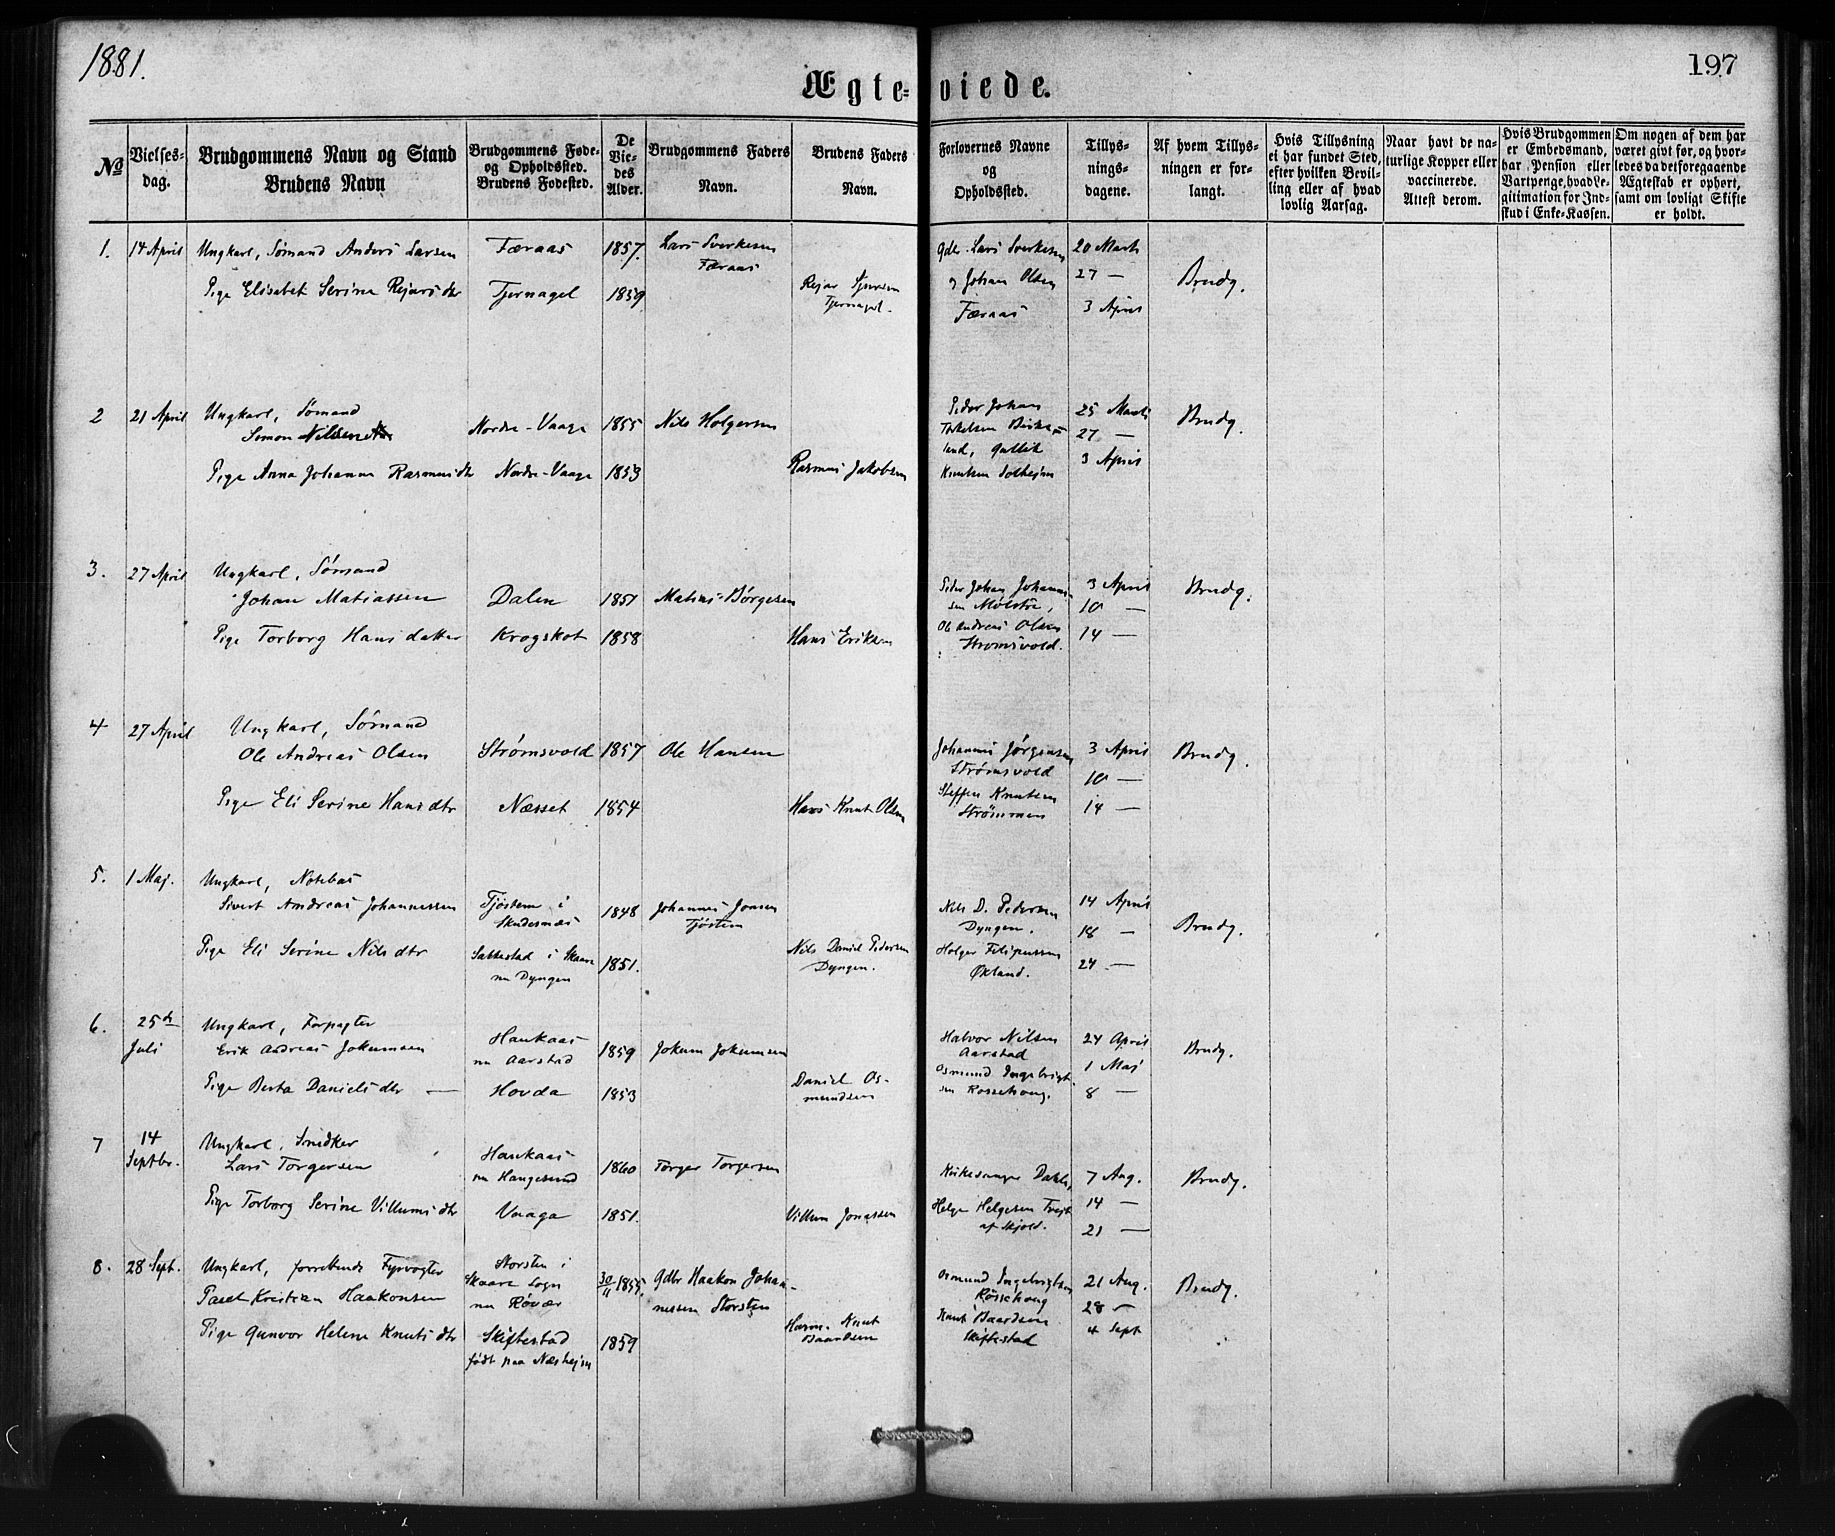 1881.
197
Ægte-viede.
No
Vielses-
dag.
Brudgommens Navn og Stand
Brudens Navn
Brudgommens Føde-
og Opholdssted.
Brudens Fødested.
De
Vie-
des
Alder.
Brudgommens Faders
Navn.
Brudens Faders
Navn.
Forlovernes Navne
og
Opholdssted.
Tillys-
nings-
dagene.
Af hvem Tillys-
ningen er for-
langt.
Hvis Tillysning
ei har fundet Sted,
efter hvilken Bevil-
ling eller af hvad
lovlig Aarsag.
Naar havt de na-
turlige Kopper eller
vaccinerede.
Attest derom.
Hvis Brudgommen
er Embedsmand,
har Pension eller
Vartpenge, hvad Le-
gitimation for Ind-
skud i Enke-Kassen.
Om nogen af dem har
været givt før, og hvor-
ledes da det foregaaende
Ægteskab er ophørt,
samt om lovligt Skifte
er holdt.
1.
14 April
Ungkarl, Sømand Anders Larsen
Pige Elisabet Serine Rejarsdtr
Færaas
Tjernagel
1857.
1859
Lars Sverkesen
Færaas
Rejar
Tjernagel.
Gdbr. Lars Sverkesen
og Johan Olsen
Færaas
20 Marts
27 —
3 April
Brudg.
2
21 April
Ungkarl, Sømand
Simon
Pige Anna Johanna Rasmusdtr
Nordre-Vaage
Nordre-Vaage
1855
1853
Nils Holgersen
Rasmus Jakobsen
Peder Johan
Torkelsen Birke-
land, Gullik
Knutsen Solhejm
25 Marts
27 —
3 April
Brudg.
3.
27 April
Ungkarl, Sømand
Johan Matiassen
Pige Torborg Hansdatter
Dalen
Krogskot
1851
1858
Matias Børgesen
Hans Eriksen
Peder Johan Johanne-
sen Mølstre,
Ole Andreas Olsen
Strømsvold.
3 April
10 —
14 —
Brudg.
4
27 April
Ungkarl, Sømand
Ole Andreas Olsen
Pige Eli Serine Hansdtr
Strømsvold
Næsset
1857
1854
Ole Hansen
Hans Knut Olsen
Johannes Jørgensen
Strømsvold
Steffen Knutsen
Strømmen
3 April
10 —
14 —
Brudg.
5.
1 Maj.
Ungkarl, Notebas
Sivert Andreas Johannessen
Pige Eli Serine Nilsdtr
Tjøstem i
Skudesnæs
Sakkestad i Skaare
nu Dyngen
1848
1851.
Johannes Jonsen
Tjøstem
Nils Daniel Pedersen
Dyngen.
Nils D. Pedersen
Dyngen.
Holger Filipussen
Økland.
14 April
18 —
24 —
Brudg.
6.
25de
Juli
Ungkarl, Forpagter
Erik Andreas Jokumsen
Pige Berta Danielsdtr —
Haukaas
nu Aarstad
Hovda
1859
1853
Jokum Jokumsen
Daniel Os-
mundsen
Halvor Nilsen
Aarstad
Osmund Ingebrigt-
sen Rossehoug.
24 April
1 Maj
8 —
Brudg.
7
14
Septbr.
Ungkarl, Snedker
Lars Torgersen
Pige Torborg Serine Villumsdtr
Haukaas
nu Haugesund
Vaaga
1860
1851.
Torger Torgersen
Villum Jonassen
Kirkesanger Dahle,
Helge Helgesen
af Skjold.
7 Aug.
14 —
21 —
Brudg.
8.
28 Sept.
Ungkarl, forrettende Fyrvogter
Parel Kristian Haakonsen
Pige Gunvor Helene Knutsdtr
Storsten i
Skaare Sogn
nu Røvær
Skiftestad
født paa Næshejm
30/11 1855.
1859
Gdbr Haakon Johan-
nessen Storsten
Knut
Baardsen
Osmund Ingebrigtsen
Rossehoug
Knut Baardsen
Skiftestad
21 Aug.
28 —
4 Sept
Brudg.